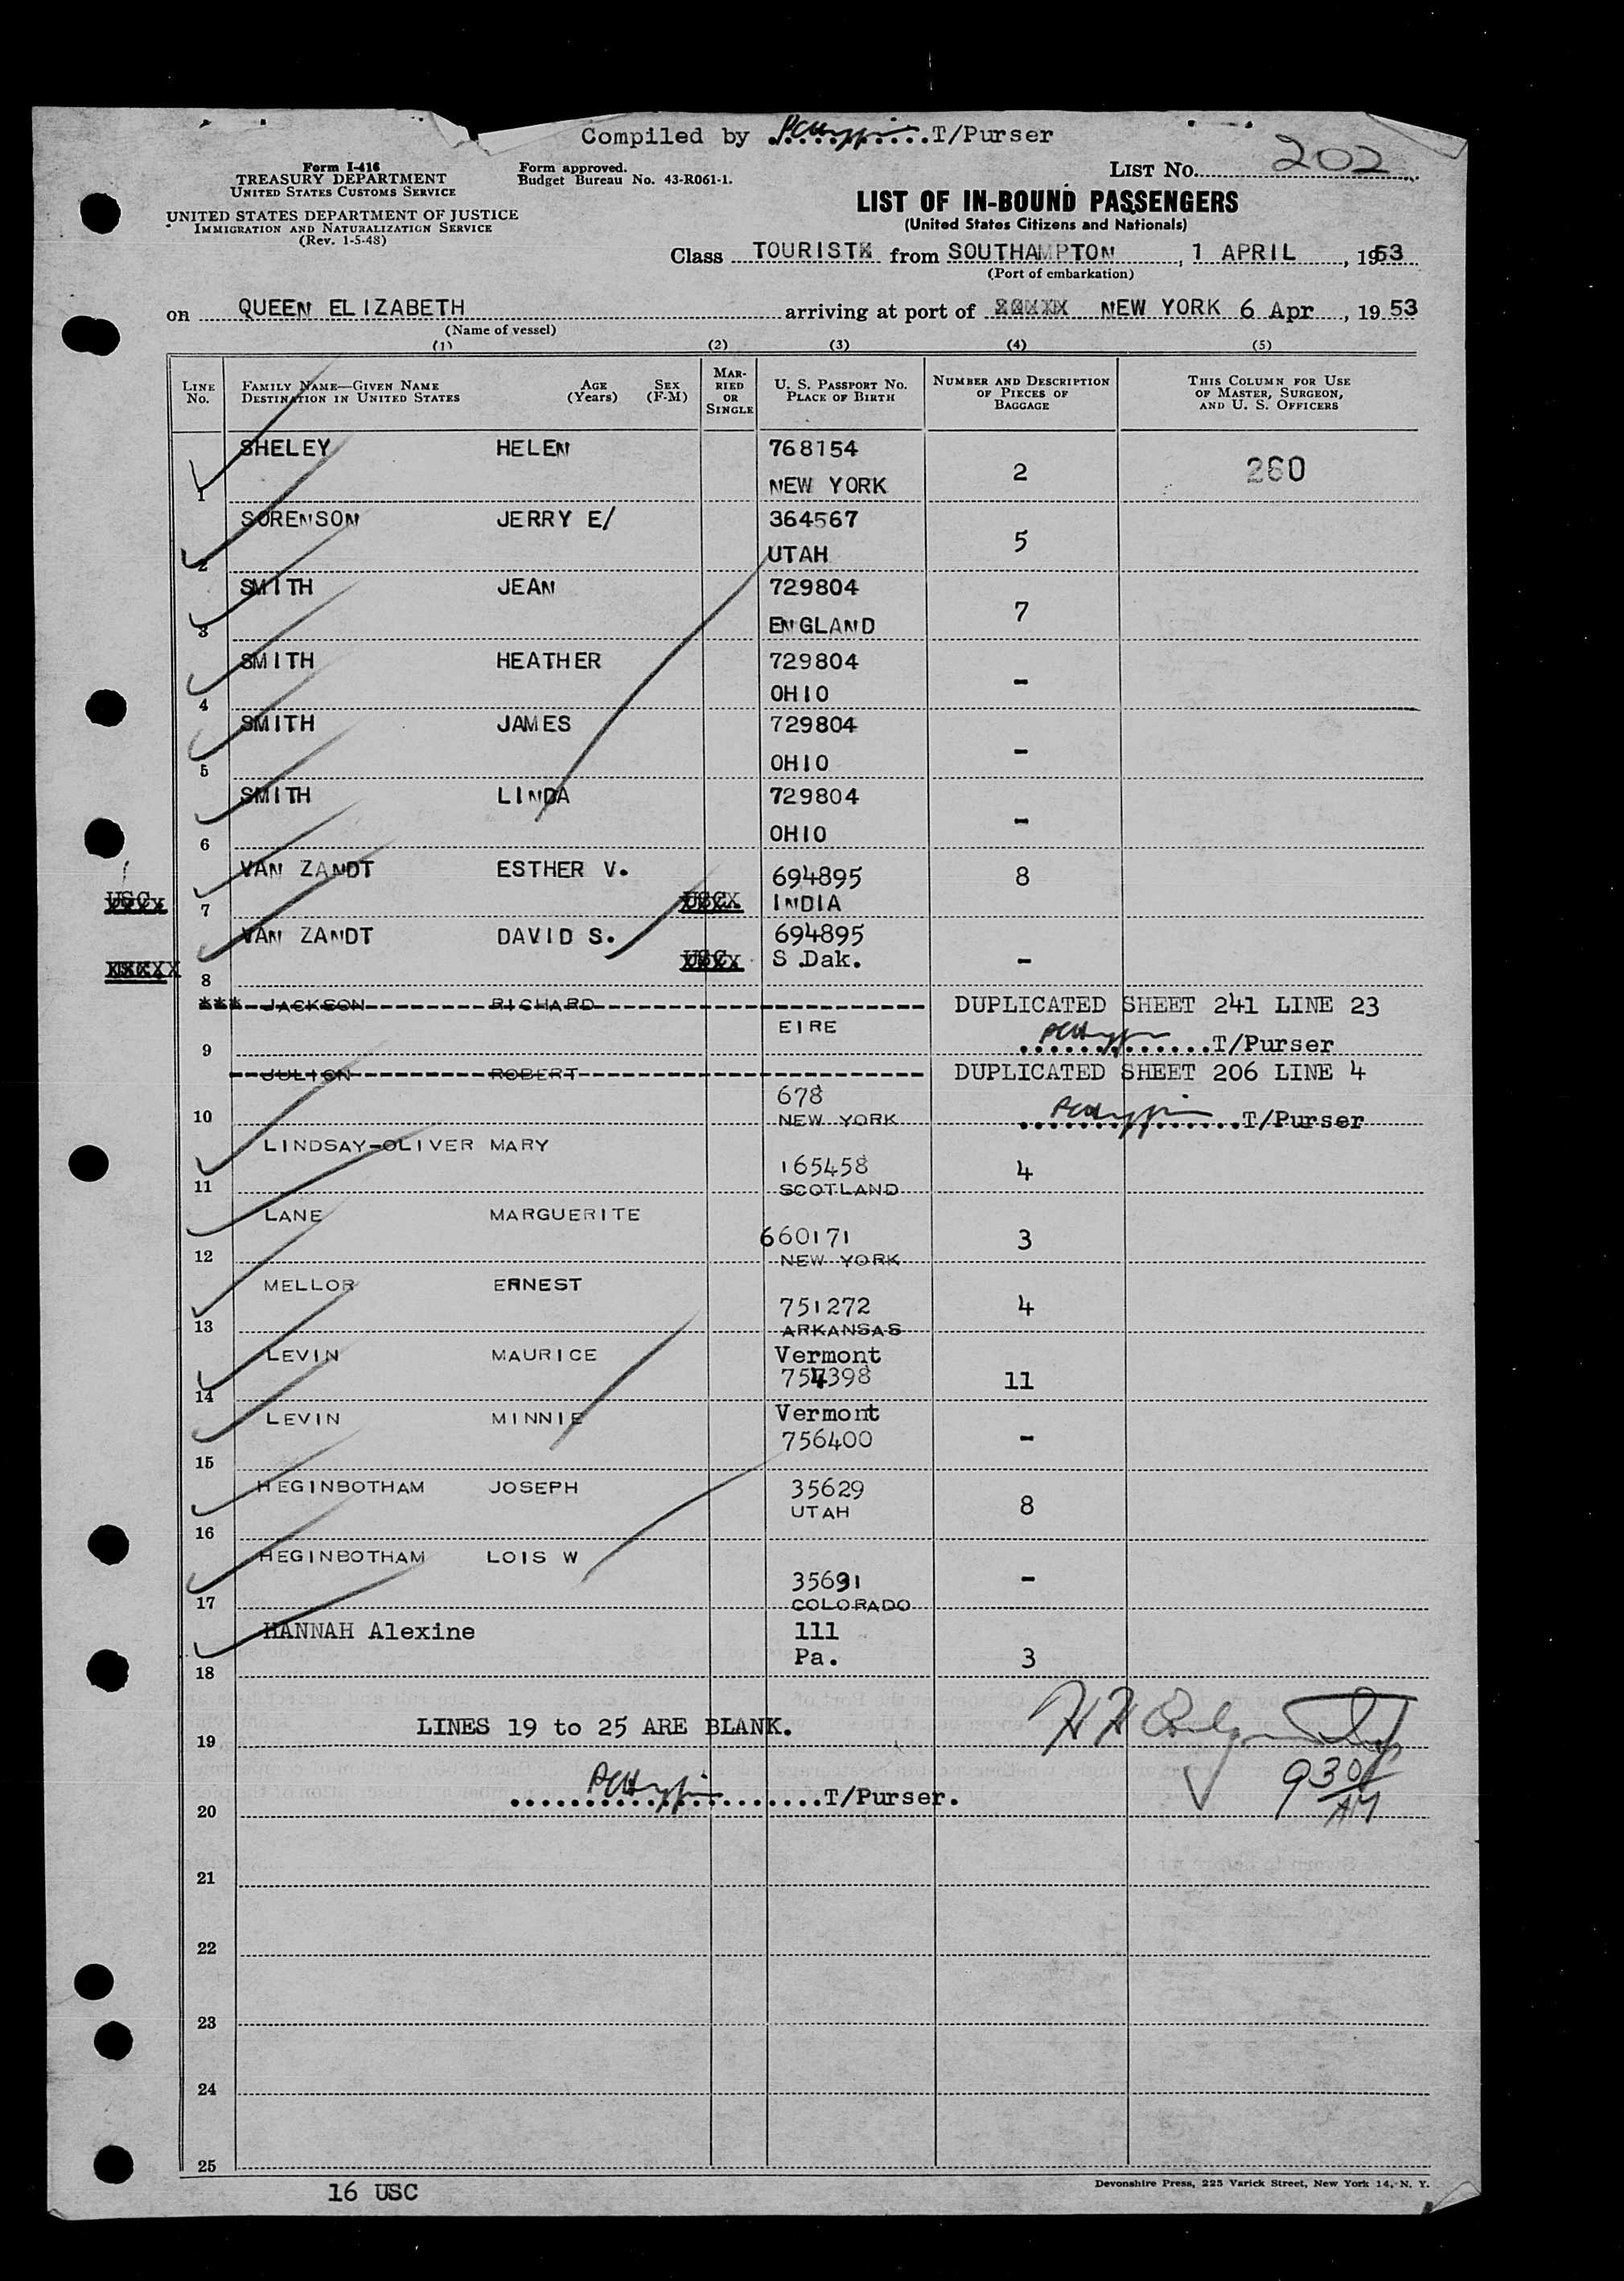 Compiled by ............T/Purser
Form I-416
TREASURY DEPARTMENT
UNITED STATES CUSTOMS SERVICE
UNITED STATES DEPARTMENT OF JUSTICE
IMMIGRATION AND NATURALIZATION SERVICE
(Rev. 1-5-48)
Form approved.
Budget Bureau No. 43-R061-1.
LIST No. 202
LIST OF IN-BOUND PASSENGERS
(United States Citizens and Nationals)
Class TOURIST from SOUTHAMPTON, 1 APRIL, 1953
(Port of embarkation)
on QUEEN ELIZABETH arriving at port of NEW YORK 6 Apr, 1953
(Name of vessel)
(1) (2) (3) (4) (5)
LINE No. FAMILY NAME—GIVEN NAME DESTINATION IN UNITED STATES AGE (Years) SEX (F-M) MARRIED OR SINGLE U. S. PASSPORT No. PLACE OF BIRTH NUMBER AND DESCRIPTION OF PIECES OF BAGGAGE THIS COLUMN FOR USE OF MASTER, SURGEON, AND U. S. OFFICERS
SHELEY HELEN 768154
1 NEW YORK 2 260
SORENSON JERRY E/ 364567
2 UTAH 5
SMITH JEAN 729804
3 ENGLAND 7
SMITH HEATHER 729804
4 OHIO -
SMITH JAMES 729804
5 OHIO -
SMITH LINDA 729804
6 OHIO -
VAN ZANDT ESTHER V. 694895 8
USC 7 USC INDIA
VAN ZANDT DAVID S. 694895
8 USC S .Dak. -
*** JACKSON RICHARD DUPLICATED SHEET 241 LINE 23
EIRE
9 .............T/Purser
JULION ROBERT DUPLICATED SHEET 206 LINE 4
678
10 NEW YORK ...............T/Purser
LINDSAY-OLIVER MARY
165458 4
11 SCOTLAND
LANE MARGUERITE
660171 3
12 NEW YORK
MELLOR ERNEST
751272 4
13 ARKANSAS
LEVIN MAURICE Vermont
14 757398 11
LEVIN MINNIE Vermont
756400 -
15
HEGINBOTHAM JOSEPH 35629
UTAH 8
16
HEGINBOTHAM LOIS W
35691 -
17 COLORADO
HANNAH Alexine 111
18 Pa. 3
19 LINES 19 to 25 ARE BLANK.
930/AM
20 ......................T/Purser.
21
22
23
24
25
16 USC
Devonshire Press, 225 Varick Street, New York 14, N. Y.